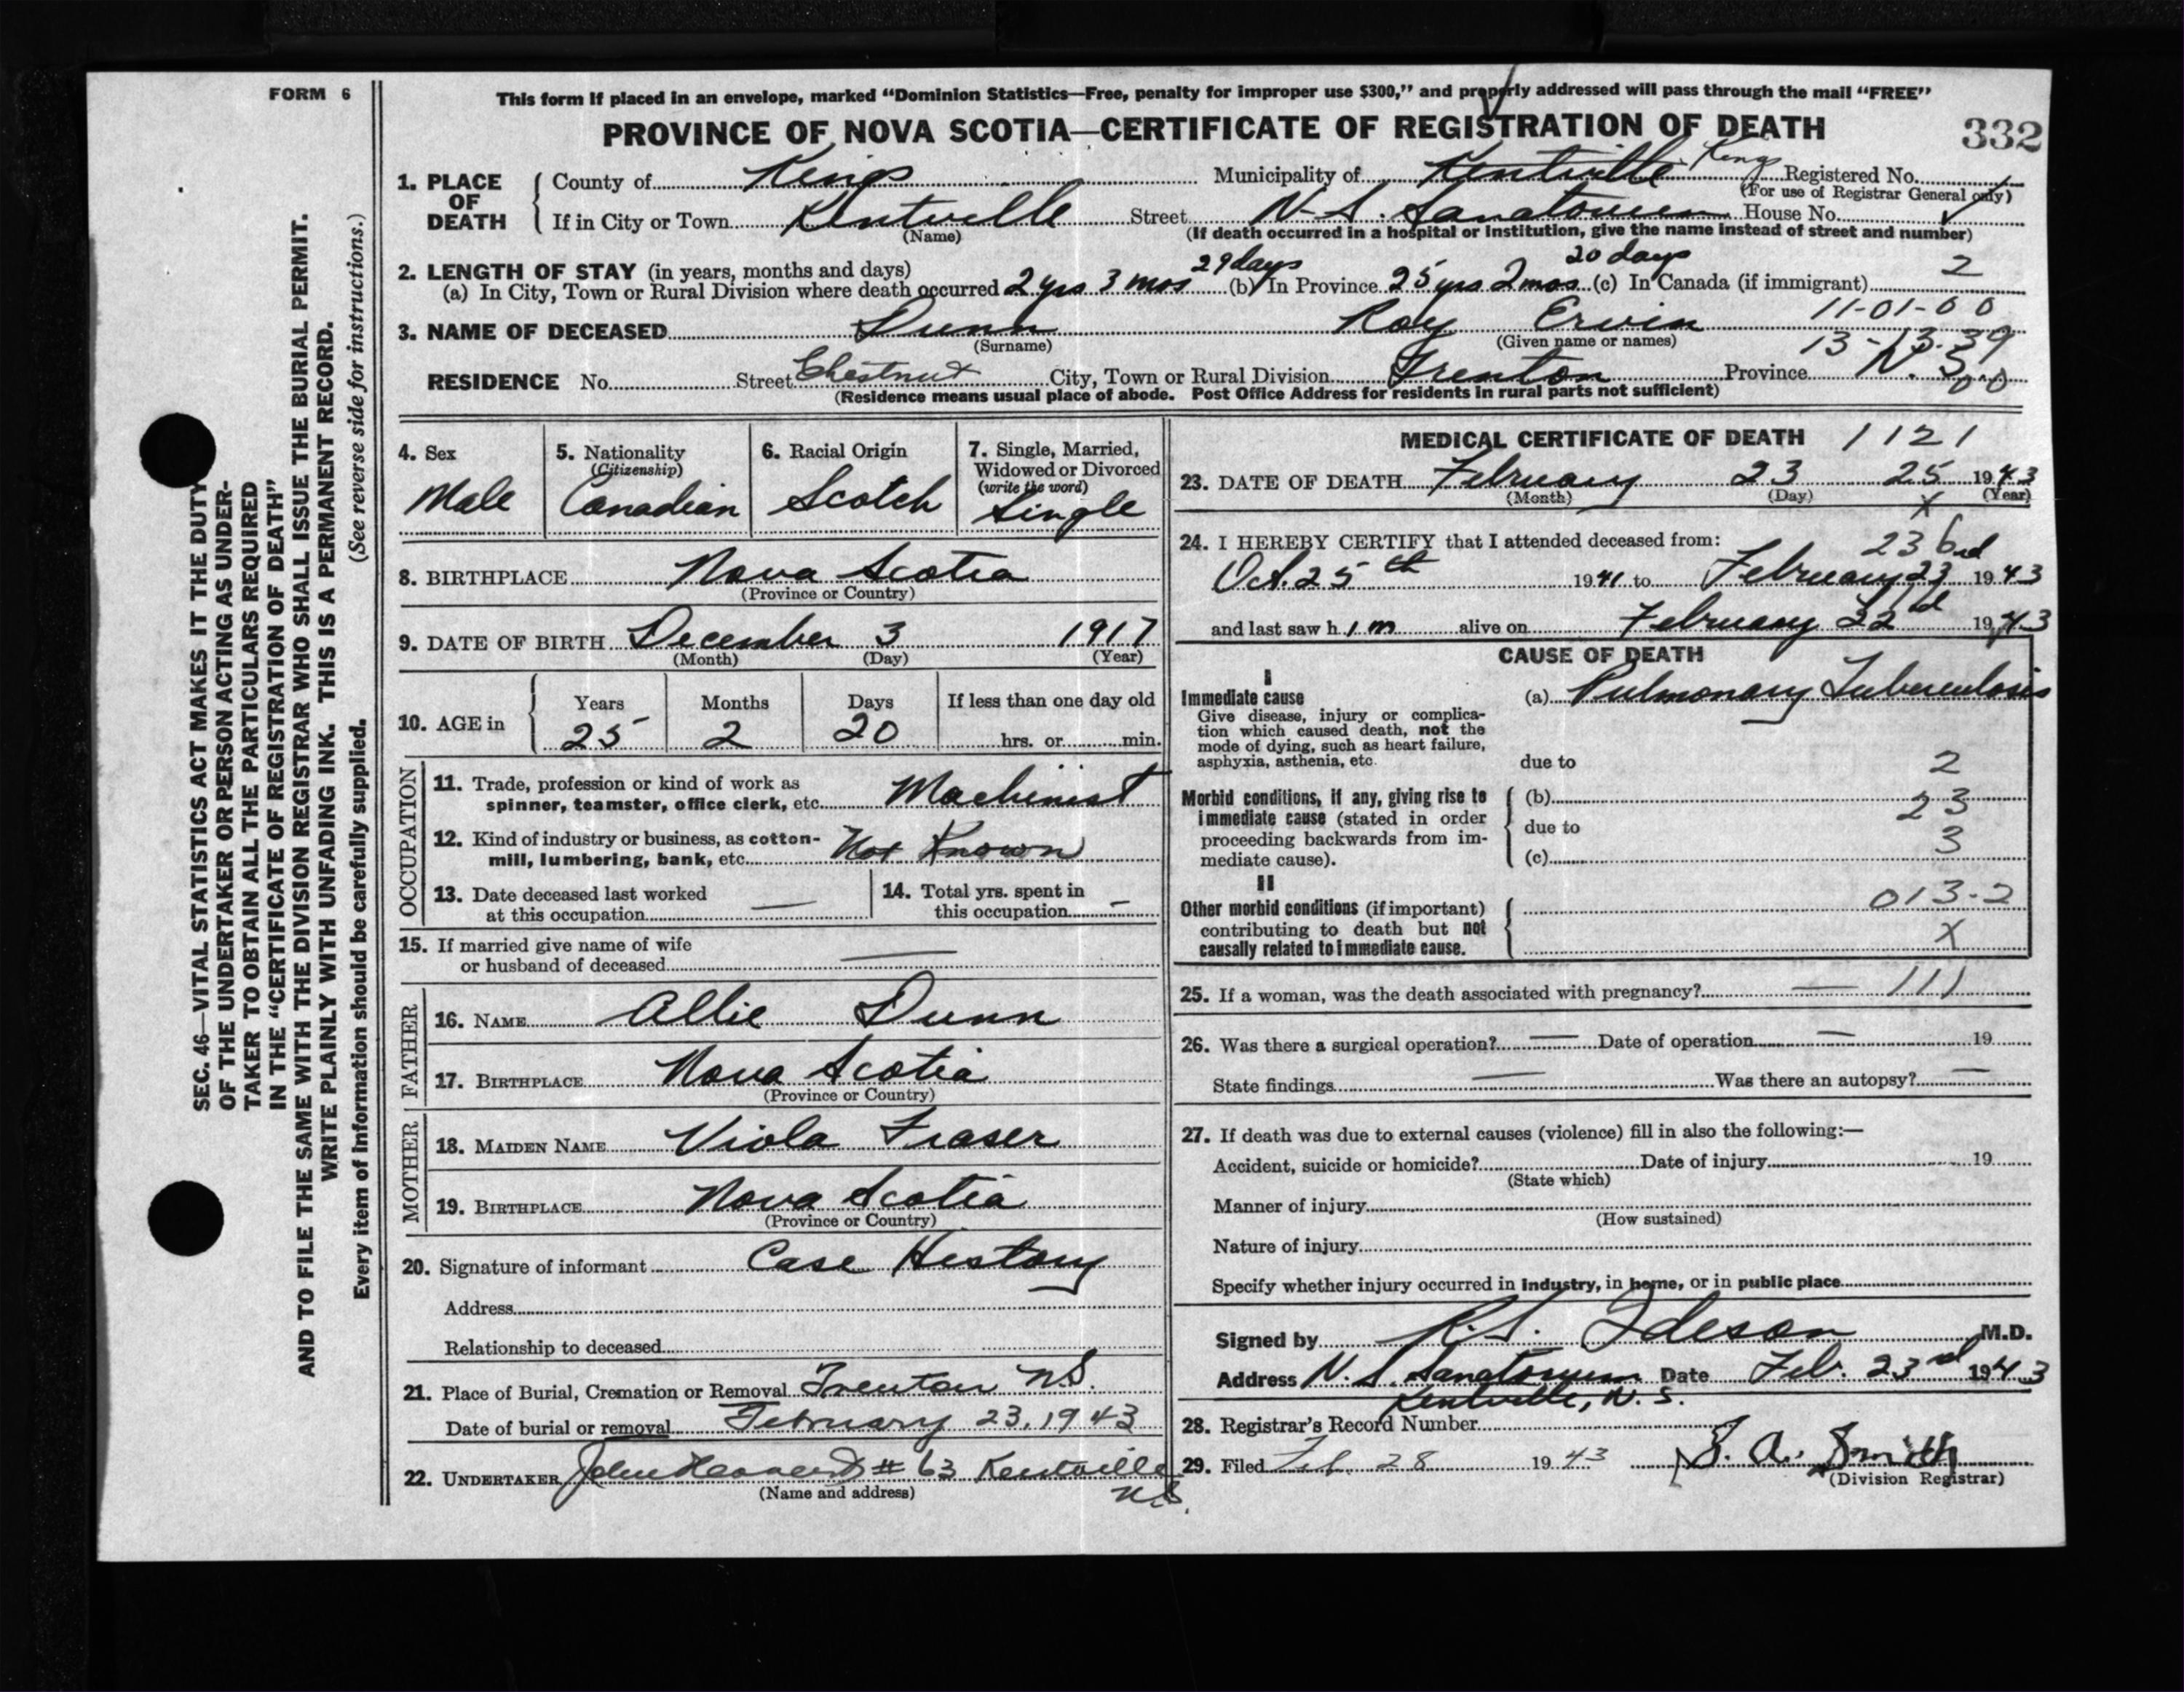 FORM 6
This form if placed in an envelope, marked “Dominion Statistics—Free, penalty for improper use $300,” and properly addressed will pass through the mail “FREE”
PROVINCE OF NOVA SCOTIA—CERTIFICATE OF REGISTRATION OF DEATH 332
1. PLACE OF DEATH
County of Kings Municipality of Kentville Kings Registered No.
(For use of Registrar General only)
If in City or Town Kentville Street N.S. Sanatorium House No.
(Name) (If death occurred in a hospital or institution, give the name instead of street and number)
2. LENGTH OF STAY (in years, months and days)
(a) In City, Town or Rural Division where death occurred 2 yrs 3 mos 29 days (b) In Province 25 yrs 2 mos 20 days (c) In Canada (if immigrant) 2
11-01-00
3. NAME OF DECEASED Dunn Roy Ervin
(Surname) (Given name or names) 13-13.39
RESIDENCE No. Street Chestnut City, Town or Rural Division Trenton Province N.S. 00
(Residence means usual place of abode. Post Office Address for residents in rural parts not sufficient)
4. Sex Male
5. Nationality (Citizenship) Canadian
6. Racial Origin Scotch
7. Single, Married, Widowed or Divorced (write the word) Single
8. BIRTHPLACE Nova Scotia
(Province or Country)
9. DATE OF BIRTH December 3 1917
(Month) (Day) (Year)
10. AGE in Years 25 Months 2 Days 20 If less than one day old hrs. or min.
OCCUPATION
11. Trade, profession or kind of work as
spinner, teamster, office clerk, etc. Machinist
12. Kind of industry or business, as cotton-
mill, lumbering, bank, etc. Not Known
13. Date deceased last worked
at this occupation —
14. Total yrs. spent in
this occupation —
15. If married give name of wife
or husband of deceased —
FATHER
16. NAME Allie Dunn
17. BIRTHPLACE Nova Scotia
(Province or Country)
MOTHER
18. MAIDEN NAME Viola Fraser
19. BIRTHPLACE Nova Scotia
(Province or Country)
20. Signature of informant Case History
Address
Relationship to deceased
21. Place of Burial, Cremation or Removal Trenton N.S.
Date of burial or removal February 23, 1943
22. UNDERTAKER John # 63 Kentville
(Name and address) N.S.
MEDICAL CERTIFICATE OF DEATH 1121
23. DATE OF DEATH February 23 25 1943
(Month) (Day) X (Year)
24. I HEREBY CERTIFY that I attended deceased from: 236
Oct. 25th 1941 to February 23rd 1943
and last saw h im alive on February 22nd 1943
CAUSE OF DEATH
I
Immediate cause (a) Pulmonary Tuberculosis
Give disease, injury or complica-
tion which caused death, not the
mode of dying, such as heart failure,
asphyxia, asthenia, etc. due to 2
Morbid conditions, if any, giving rise to (b) 23
immediate cause (stated in order due to
proceeding backwards from im- 3
mediate cause). (c)
II
Other morbid conditions (if important) 013-2
contributing to death but not
causally related to immediate cause. X
25. If a woman, was the death associated with pregnancy? — 111
26. Was there a surgical operation? — Date of operation — 19
State findings — Was there an autopsy? —
27. If death was due to external causes (violence) fill in also the following:—
Accident, suicide or homicide? Date of injury 19
(State which)
Manner of injury
(How sustained)
Nature of injury
Specify whether injury occurred in industry, in home, or in public place
Signed by R.S. Ideson M.D.
Address N.S. Sanatorium Date Feb. 23rd 1943
Kentville, N.S.
28. Registrar's Record Number
29. Filed Feb. 28 1943 S. A. Smith
(Division Registrar)
SEC. 46—VITAL STATISTICS ACT MAKES IT THE DUTY
OF THE UNDERTAKER OR PERSON ACTING AS UNDER-
TAKER TO OBTAIN ALL THE PARTICULARS REQUIRED
IN THE “CERTIFICATE OF REGISTRATION OF DEATH”
AND TO FILE THE SAME WITH THE DIVISION REGISTRAR WHO SHALL ISSUE THE BURIAL PERMIT.
WRITE PLAINLY WITH UNFADING INK. THIS IS A PERMANENT RECORD.
Every item of information should be carefully supplied. (See reverse side for instructions.)